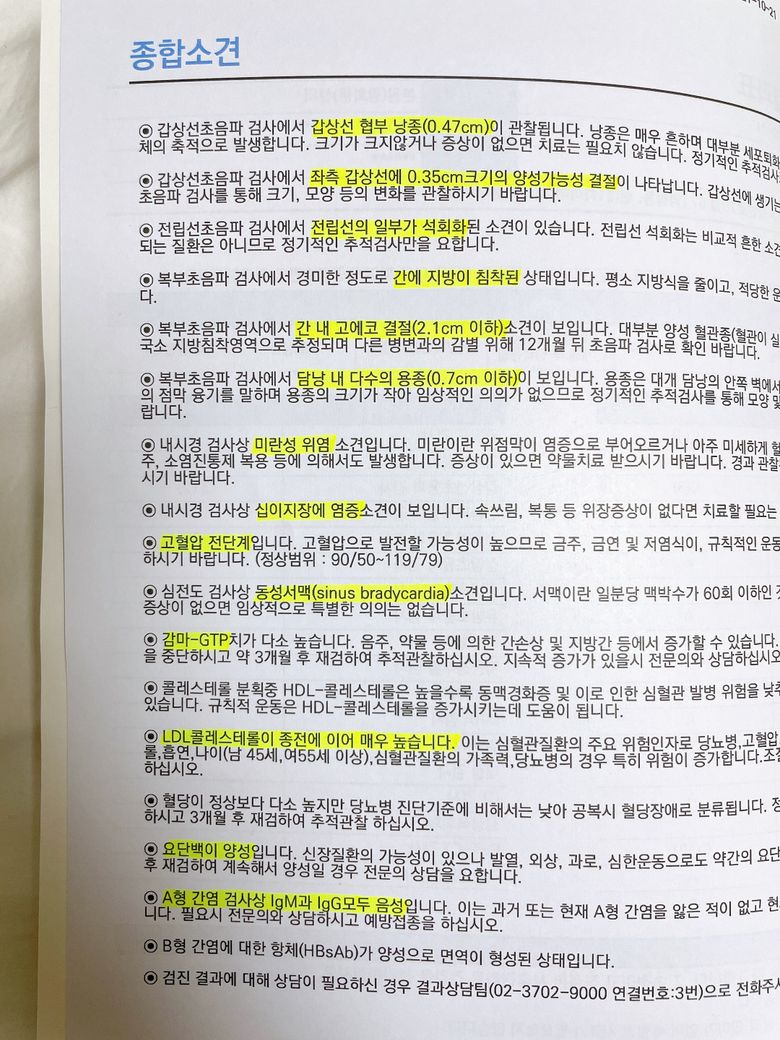 10-21
종합소견
◉ 갑상선초음파 검사에서 갑상선 협부 낭종(0.47cm)이 관찰됩니다. 낭종은 매우 흔하며 대부분 세포퇴화
체의 축적으로 발생합니다. 크기가 크지않거나 증상이 없으면 치료는 필요치 않습니다. 정기적인 추적검사
◉ 갑상선초음파 검사에서 좌측 갑상선에 0.35cm크기의 양성가능성 결절이 나타납니다. 갑상선에 생기는
초음파 검사를 통해 크기, 모양 등의 변화를 관찰하시기 바랍니다.
◉ 전립선초음파 검사에서 전립선의 일부가 석회화된 소견이 있습니다. 전립선 석회화는 비교적 흔한 소견
되는 질환은 아니므로 정기적인 추적검사만을 요합니다.
◉ 복부초음파 검사에서 경미한 정도로 간에 지방이 침착된 상태입니다. 평소 지방식을 줄이고, 적당한 운
다.
◉ 복부초음파 검사에서 간 내 고에코 결절(2.1cm 이하)소견이 보입니다. 대부분 양성 혈관종(혈관이 실
국소 지방침착영역으로 추정되며 다른 병변과의 감별 위해 12개월 뒤 초음파 검사로 확인 바랍니다.
◉ 복부초음파 검사에서 담낭 내 다수의 용종(0.7cm 이하)이 보입니다. 용종은 대개 담낭의 안쪽 벽에서
의 점막 융기를 말하며 용종의 크기가 작아 임상적인 의의가 없으므로 정기적인 추적검사를 통해 모양 및
랍니다.
◉ 내시경 검사상 미란성 위염 소견입니다. 미란이란 위점막이 염증으로 부어오르거나 아주 미세하게 헐
주, 소염진통제 복용 등에 의해서도 발생합니다. 증상이 있으면 약물치료 받으시기 바랍니다. 경과 관찰
시기 바랍니다.
◉ 내시경 검사상 십이지장에 염증소견이 보입니다. 속쓰림, 복통 등 위장증상이 없다면 치료할 필요는
◉ 고혈압 전단계입니다. 고혈압으로 발전할 가능성이 높으므로 금주, 금연 및 저염식이, 규칙적인 운동
하시기 바랍니다. (정상범위 : 90/50~119/79)
◉ 심전도 검사상 동성서맥(sinus bradycardia)소견입니다. 서맥이란 일분당 맥박수가 60회 이하인 것
증상이 없으면 임상적으로 특별한 의의는 없습니다.
◉ 감마-GTP치가 다소 높습니다. 음주, 약물 등에 의한 간손상 및 지방간 등에서 증가할 수 있습니다.
을 중단하시고 약 3개월 후 재검하여 추적관찰하십시오. 지속적 증가가 있을시 전문의와 상담하십시오
◉ 콜레스테롤 분획중 HDL-콜레스테롤은 높을수록 동맥경화증 및 이로 인한 심혈관 발병 위험을 낮추
있습니다. 규칙적인 운동은 HDL-콜레스테롤을 증가시키는데 도움이 됩니다.
◉ LDL콜레스테롤이 종전에 이어 매우 높습니다. 이는 심혈관질환의 주요 위험인자로 당뇨병,고혈압
롤,흡연,나이(남 45세,여55세 이상),심혈관질환의 가족력,당뇨병의 경우 특히 위험이 증가합니다.조절
하십시오.
◉ 혈당이 정상보다 다소 높지만 당뇨병 진단기준에 비해서는 낮아 공복시 혈당장애로 분류됩니다. 정
하시고 3개월 후 재검하여 추적관찰 하십시오.
◉ 요단백이 양성입니다. 신장질환의 가능성이 있으나 발열, 외상, 과로, 심한운동으로도 약간의 요단
후 재검하여 계속해서 양성일 경우 전문의 상담을 요합니다.
◉ A형 간염 검사상 IgM과 IgG모두 음성입니다. 이는 과거 또는 현재 A형 간염을 앓은 적이 없고 현
니다. 필요시 전문의와 상담하시고 예방접종을 하십시오.
◉ B형 간염에 대한 항체(HBsAb)가 양성으로 면역이 형성된 상태입니다.
◉ 검진 결과에 대해 상담이 필요하신 경우 결과상담팀(02-3702-9000 연결번호:3번)으로 전화주시